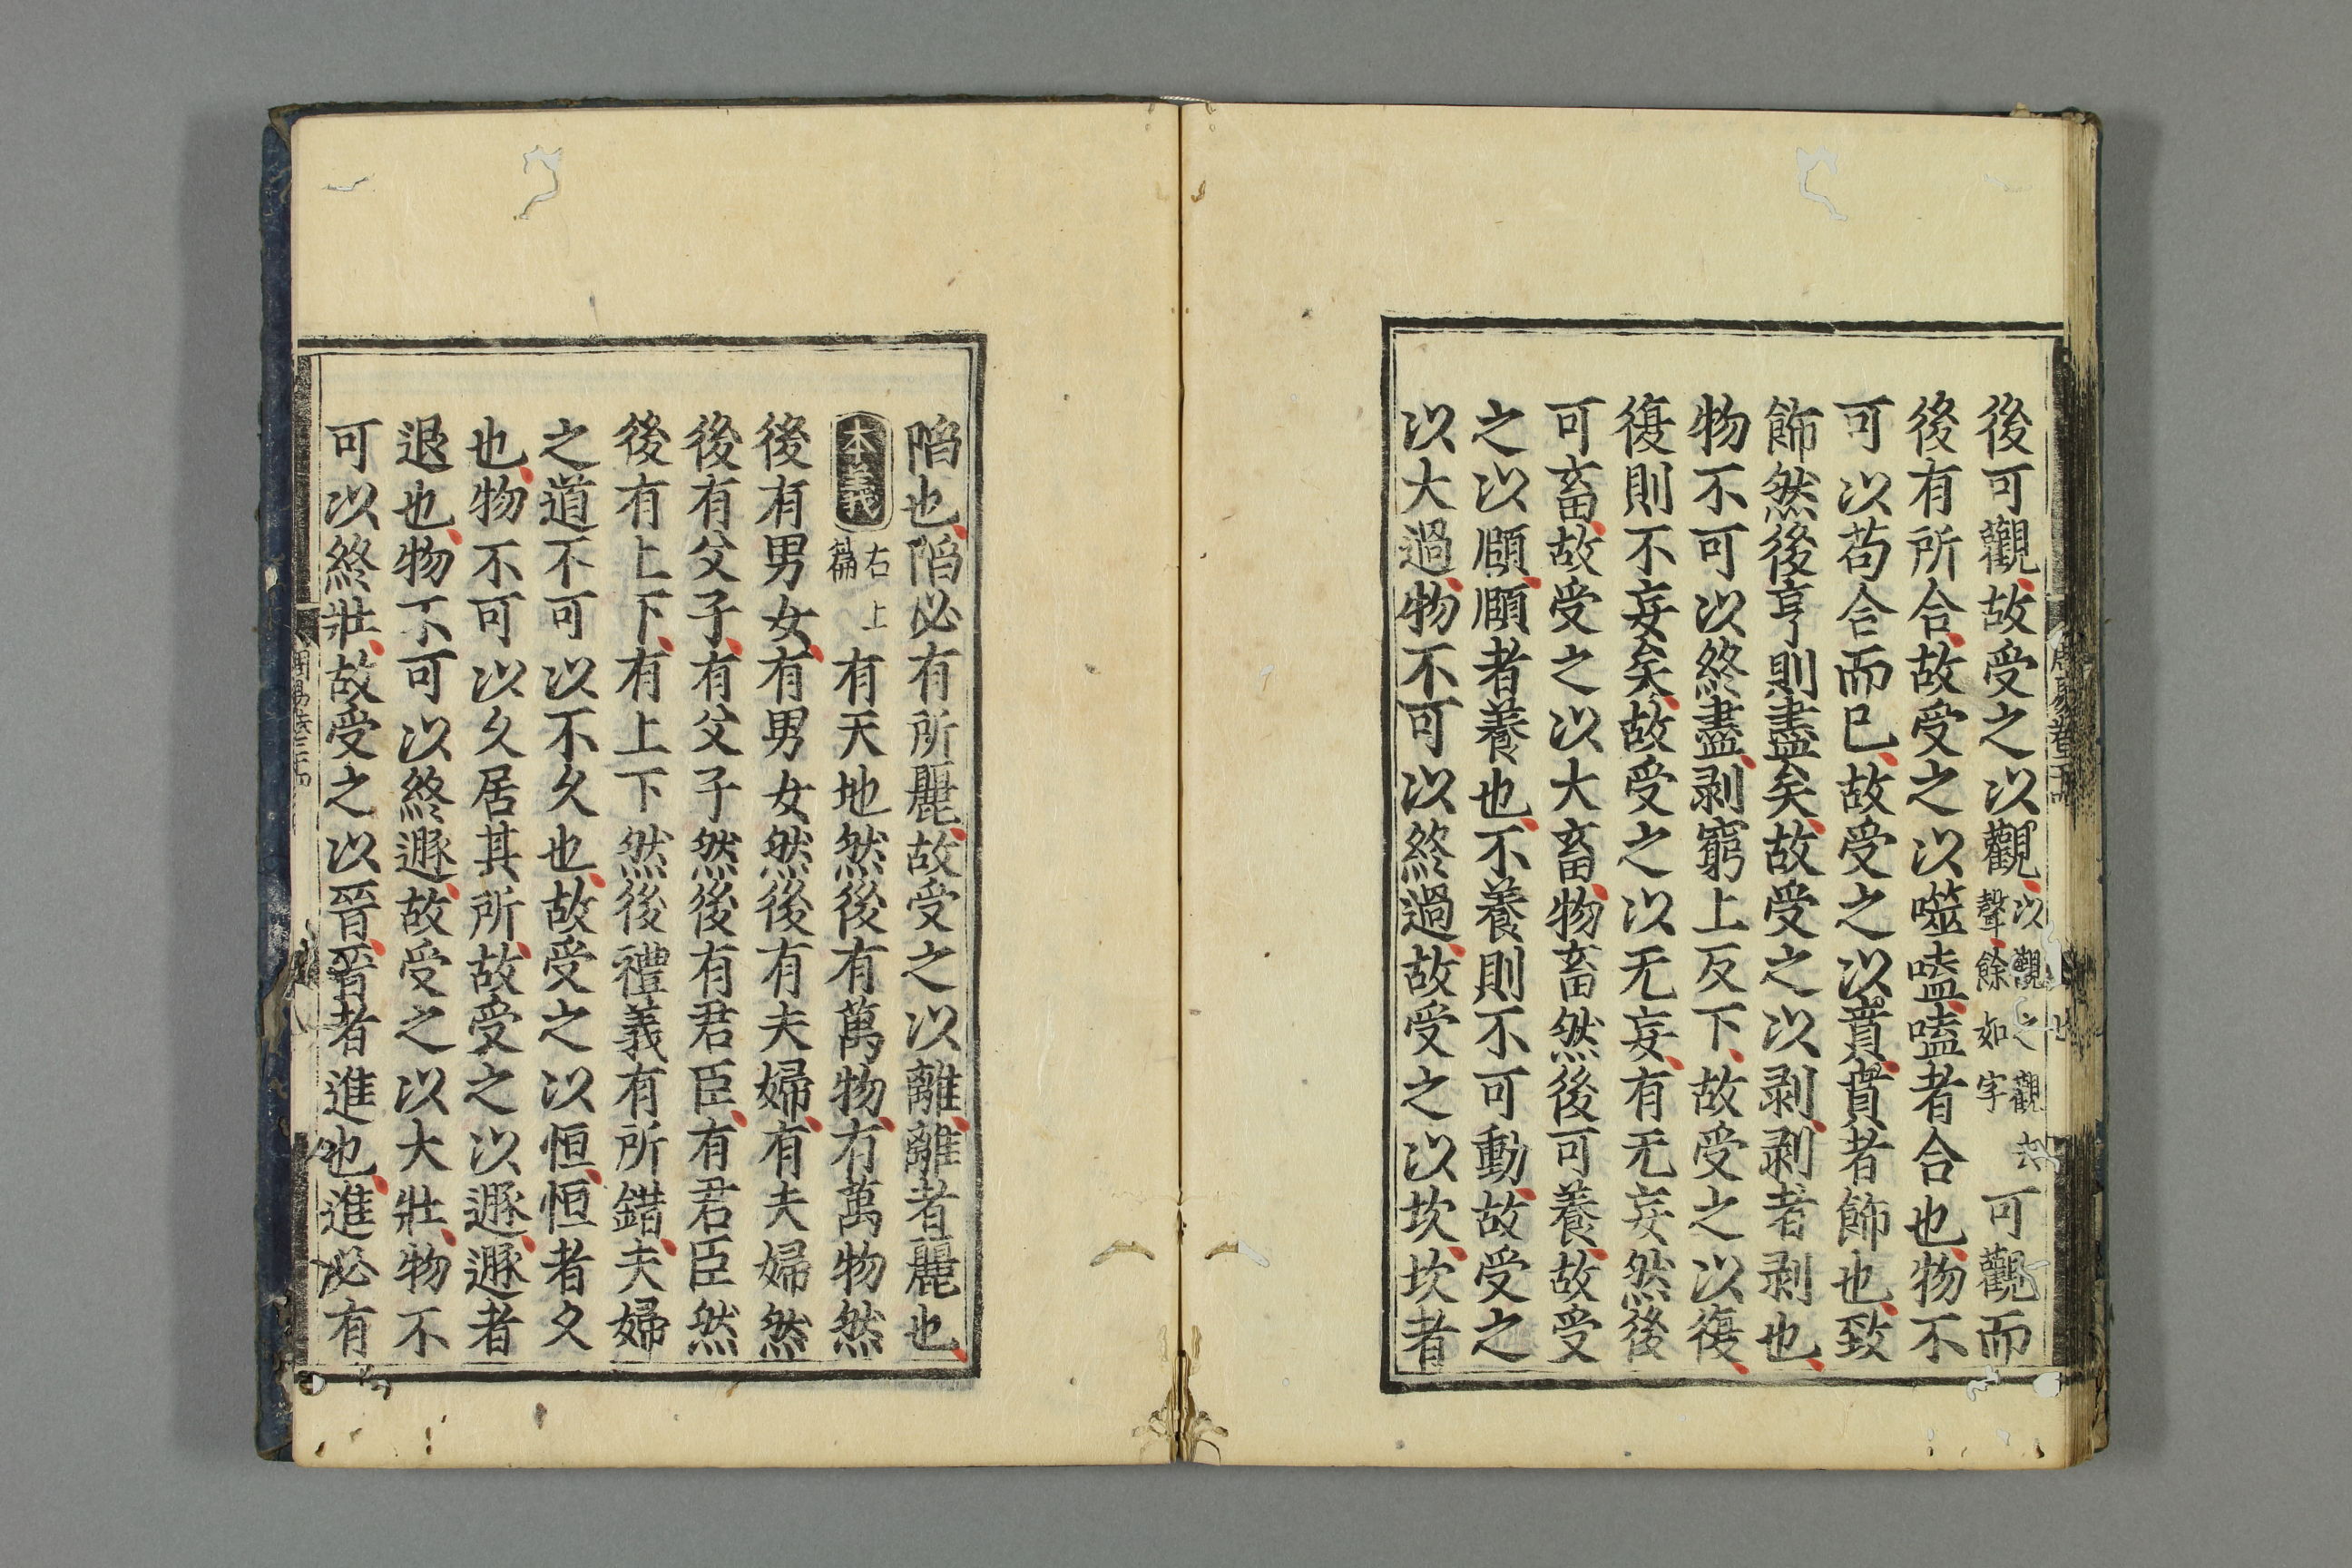 後可觀故受之以觀以觀之觀去聲餘如字可觀而
後有所合故受之以噬嗑嗑者合也物不
可以苟合而已故受之以賁賁者飾也致
飾然後亨則盡矣故受之以剥剥者剥也
物不可以終盡剥窮上反下故受之以復
復則不妄矣故受之以无妄有无妄然後
可畜故受之以大畜物畜然後可養故受
之以頤頤者養也不養則不可動故受之
以大過物不可以終過故受之以坎坎者
陷也陷必有所麗故受之以離離者麗也
本義右上篇有天地然後有萬物有萬物然
後有男女有男女然後有夫婦有夫婦然
後有父子有父子然後有君臣有君臣然
後有上下有上下然後禮義有所錯夫婦
之道不可以不久也故受之以恒恒者久
也物不可以久居其所故受之以遯遯者
退也物不可以終遯故受之以大壯物不
可以終壯故受之以晉晉者進也進必有
周易卷二十四